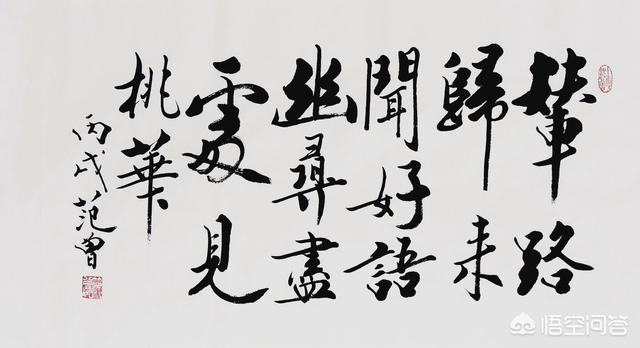 輦路
歸来
聞好語
幽尋盡
處見
桃華
丙戌范曾
悟空问答